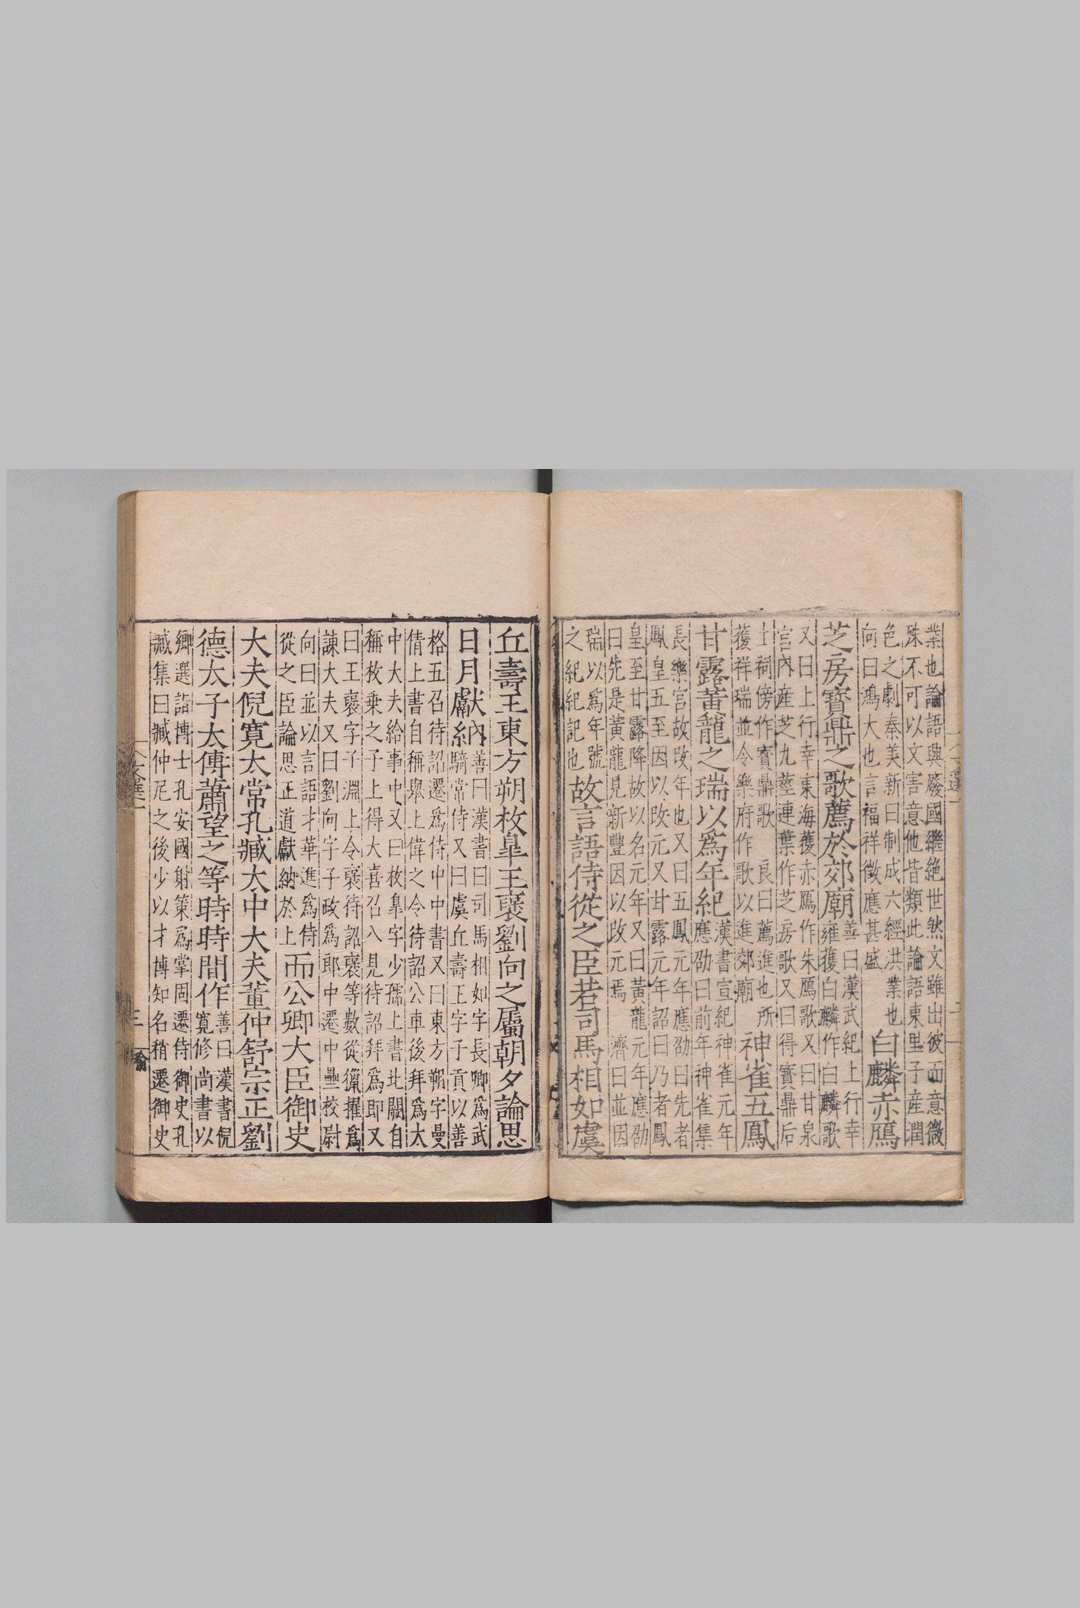 業也論語興廢國繼絕世然文雖出彼而意微
殊不可以文害意他皆類此論語東里子產潤
色之劇秦美新曰制成六經洪業也
向曰鴻大也言福祥徵應甚盛
白麟赤鴈
芝房寶鼎之歌薦於郊廟
善曰漢武紀上行幸
雍獲白麟作白麟歌
又曰上行幸東海獲赤鴈作朱鴈歌又曰甘泉
宮內產芝九莖連葉作芝房歌又曰得寶鼎后
土祠傍作寶鼎歌 良曰薦進也所
獲祥瑞並令樂府作歌以進郊廟
神雀五鳳
甘露黃龍之瑞以爲年紀
漢書宣紀神雀元年
應劭曰前年神雀集
長樂宮故改年也又曰五鳳元年應劭曰先者
鳳皇五至因以改元又甘露元年詔曰乃者鳳
皇至甘露降故以名元年又曰黃龍元年應劭
曰先是黃龍見新豐因以改元焉 濟曰並因
瑞以爲年號
之紀紀記也
故言語侍從之臣若司馬相如虞
丘壽王東方朔枚皐王襃劉向之屬朝夕論思
日月獻納
善曰漢書曰司馬相如字長卿爲武
騎常侍又曰虞丘壽王字子貢以善
格五召待詔遷爲侍中中書又曰東方朔字曼
倩上書自稱舉上偉之令待詔公車後拜爲太
中大夫給事中又曰枚皐字少孺上書北闕自
稱枚乘之子上得大喜召入見待詔拜爲郎又
曰王襃字子淵上令襃待詔襃等數從獵擢爲
諫大夫又曰劉向字子政爲郎中遷中壘校尉
向曰並以言語才華進爲侍
從之臣論思正道獻納於上
而公卿大臣御史
大夫倪寬太常孔臧太中大夫董仲舒宗正劉
德太子太傅蕭望之等時時間作
善曰漢書倪
寬修尚書以
卿選詣博士孔安國射策爲掌固遷侍御史孔
臧集曰臧仲尼之後少以才博知名稍遷御史
文選一
三